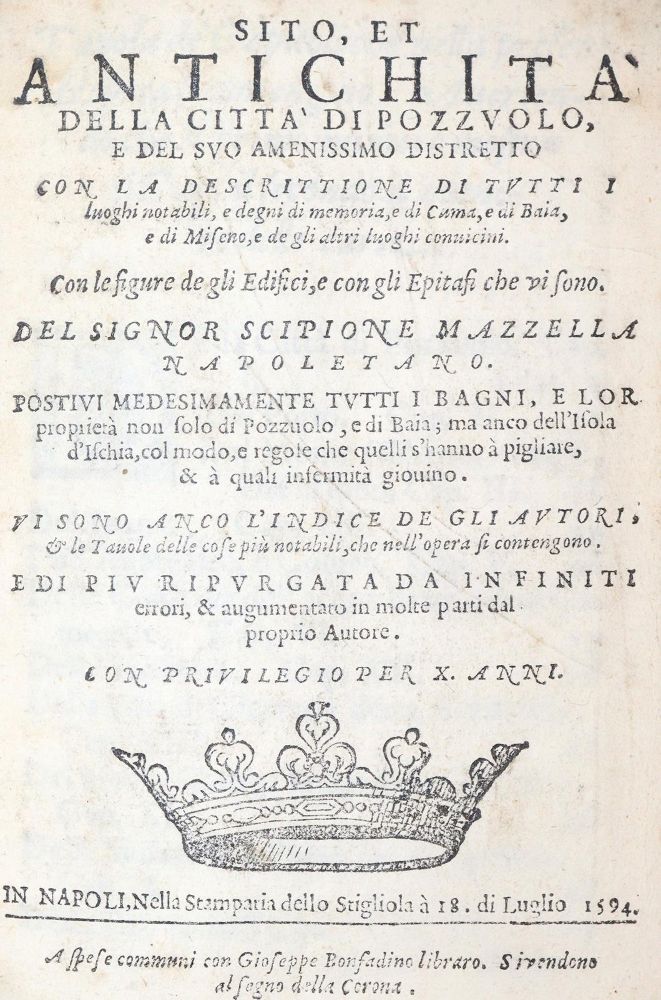 SITO, ET
ANTICHITA'
DELLA CITTA' DI POZZVOLO,
E DEL SVO AMENISSIMO DISTRETTO
CON LA DESCRITTIONE DI TVTTI I
luoghi notabili, e degni di memoria, e di Cuma, e di Baia,
e di Miſeno, e de gli altri luoghi conuicini.
Con le figure de gli Edifici, e con gli Epitafi che vi ſono.
DEL SIGNOR SCIPIONE MAZZELLA
NAPOLETANO.
POSTIVI MEDESIMAMENTE TVTTI I BAGNI, E LOR
proprietà non ſolo di Pozzuolo, e di Baia; ma anco dell'Iſola
d'Iſchia, col modo, e regole che quelli s'hanno à pigliare,
& à quali infermità giouino.
VI SONO ANCO L'INDICE DE GLI AVTORI,
& le Tauole delle coſe più notabili, che nell'opera ſi contengono.
E DI PIV RIPVRGATA DA INFINITI
errori, & augumentato in molte parti dal
proprio Autore.
CON PRIVILEGIO PER X. ANNI.
IN NAPOLI, Nella Stamparia dello Stigliola à 18. di Luglio 1594.
A ſpeſe communi con Gioſeppe Bonfadino libraro. Si vendono
al ſegno della Corona.